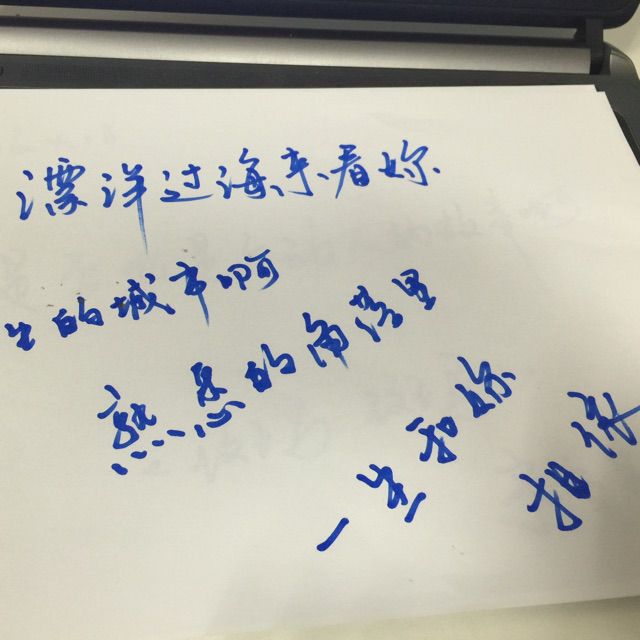 漂洋过海来看你
生的城市啊
熟悉的角落里
一生和你
相依